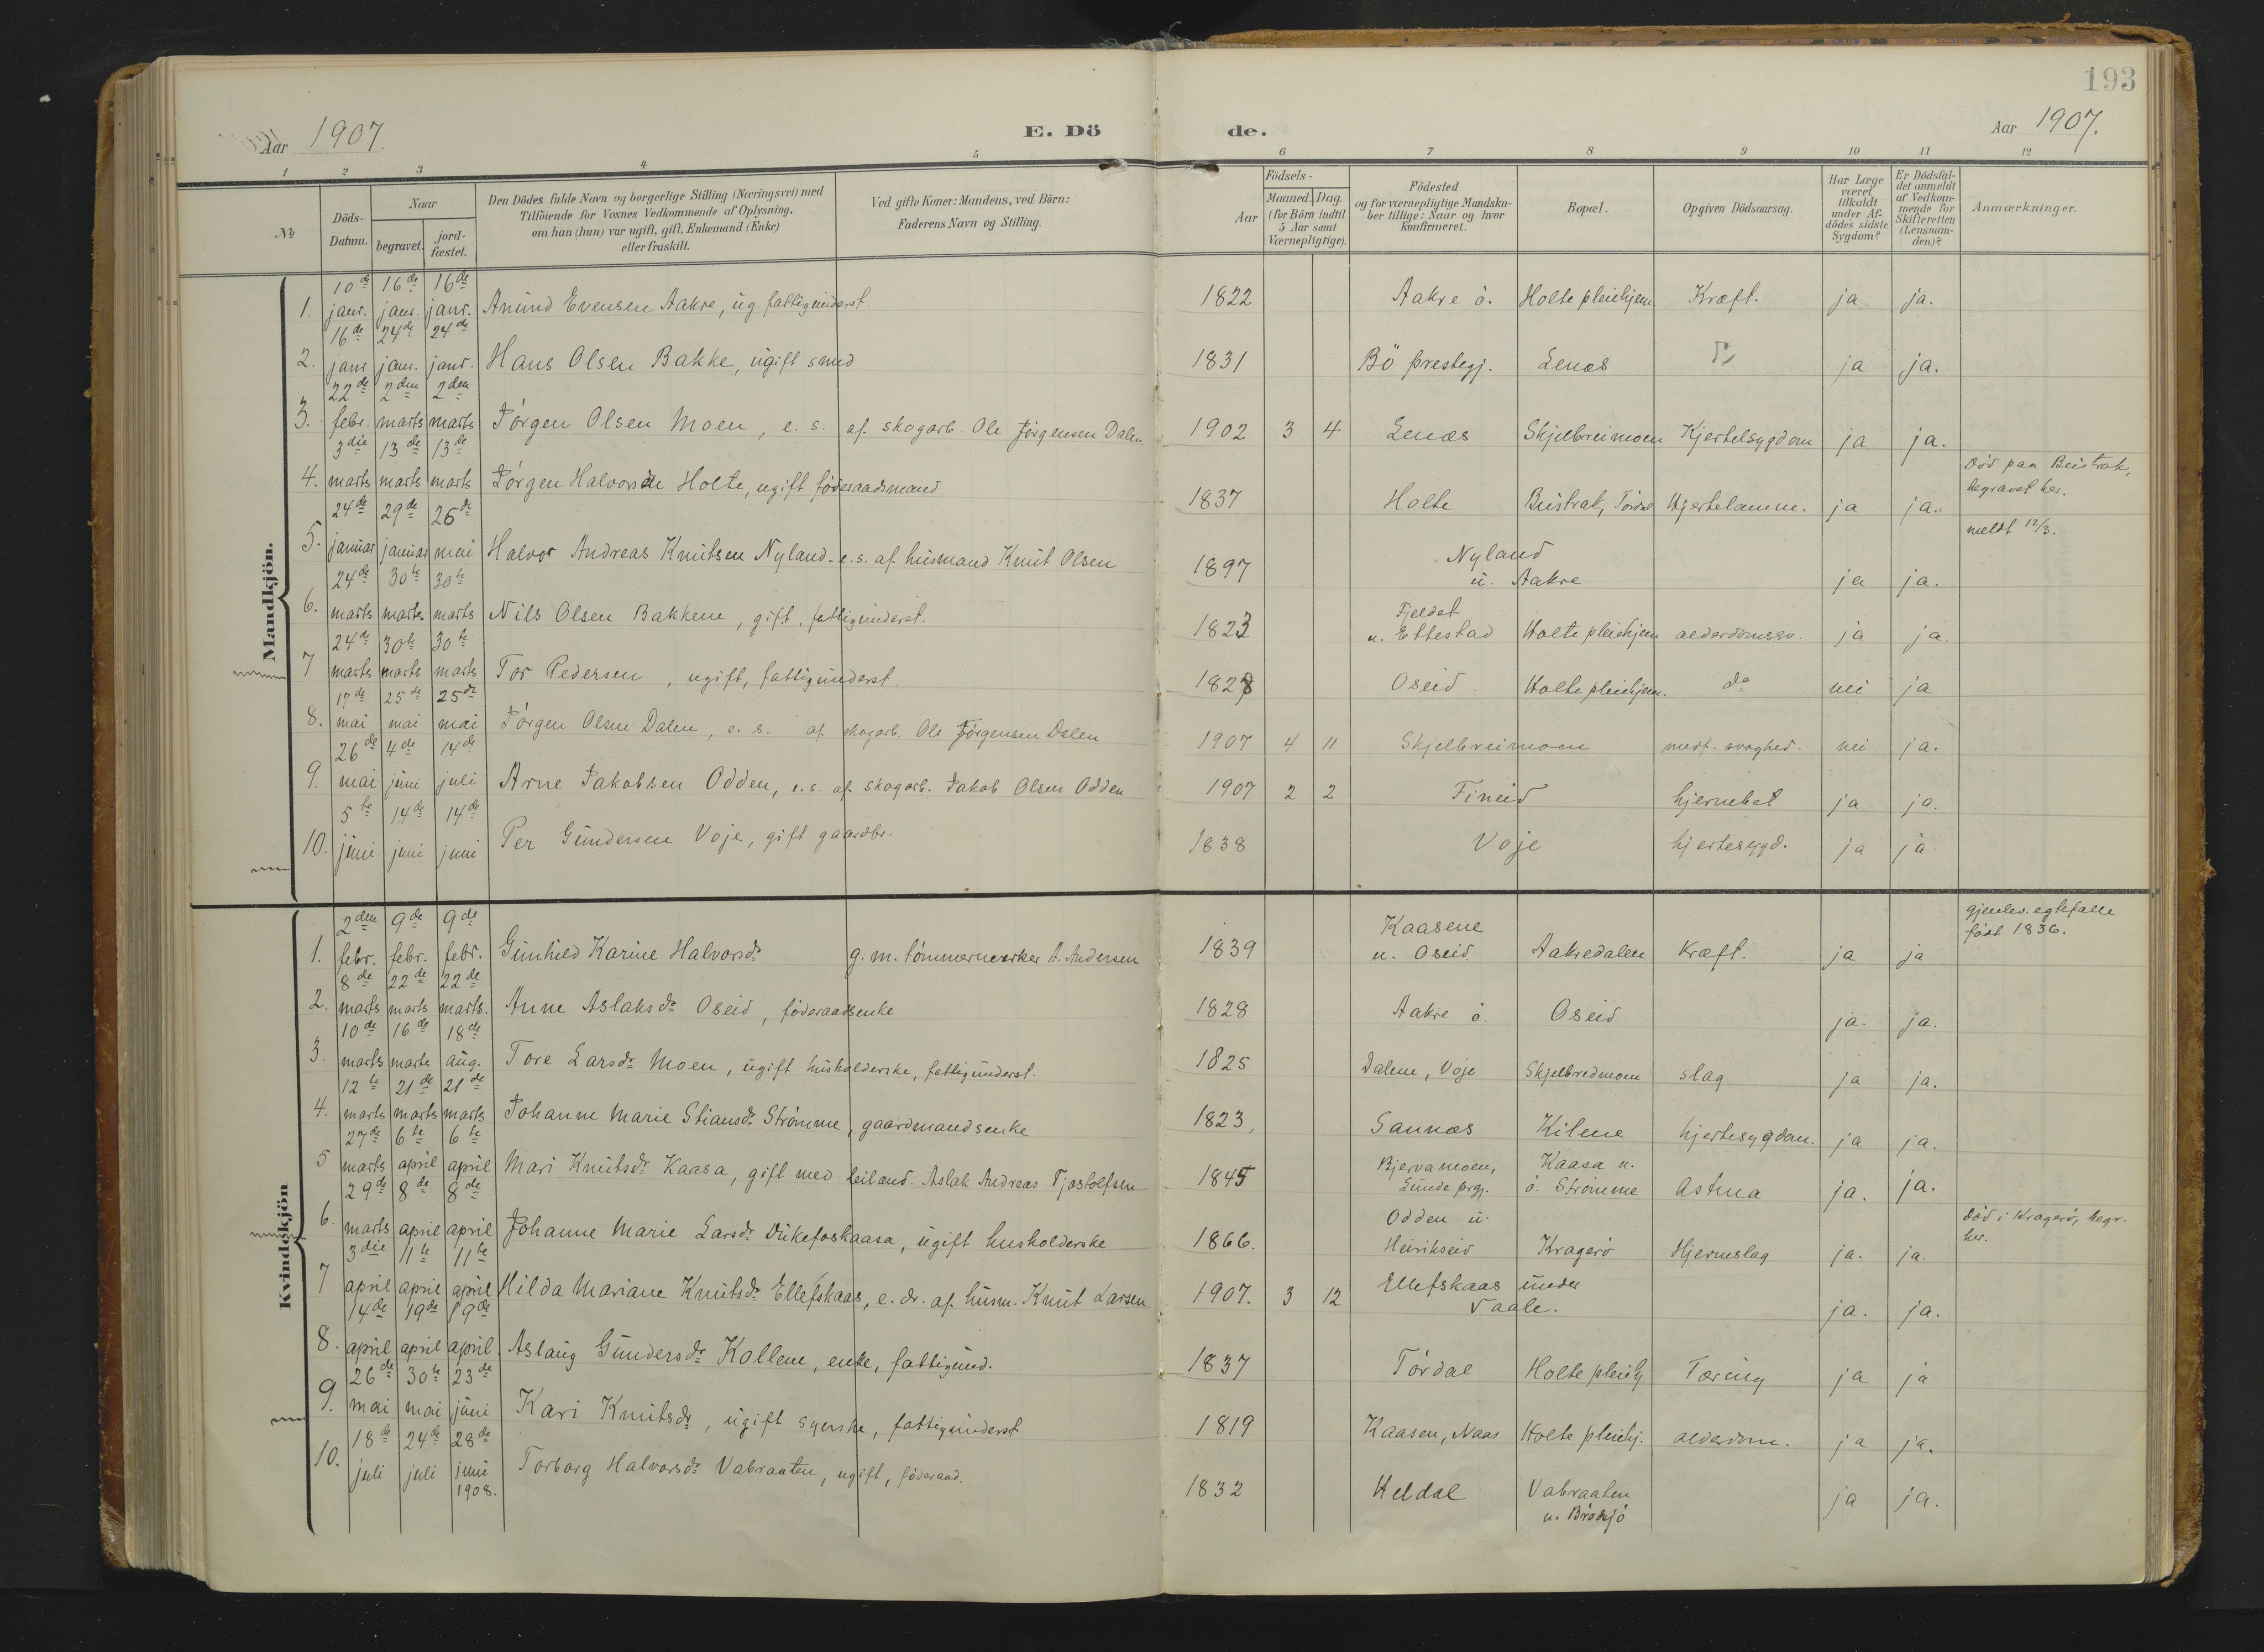 193
Aar 1907.
E. Dö de.
Aar 1907.
1 2 3 4 5 6 7 8 9 10 11 12
№
Döds-Datum.
Naar
begravet.
jord-fæstet.
Den Dödes fulde Navn og borgerlige Stilling (Næringsvei) med
Tilföiende for Voxnes Vedkommende af Oplysning,
om han (hun) var ugift, gift, Enkemand (Enke)
eller fraskilt.
Ved gifte Koner: Mandens, ved Börn:
Faderens Navn og Stilling.
Födsels-
Aar
Maaned. Dag.
(for Börn indtil
5 Aar samt
Værnepligtige).
Födested
og for værnepligtige Mandska-
ber tillige: Naar og hvor
konfirmeret.
Bopæl.
Opgiven Dödsaarsag.
Har Læge
været
tilkaldt
under Af-
dödes sidste
Sygdom?
Er Dödsfal-
det anmeldt
af Vedkom-
mende for
Skifteretten
(Lensman-
den)?
Anmærkninger.
Mandkjön.
1. 10de janr. 16de janr. 16de janr. Anund Evensen Aakre, ug. fattigunderst. 1822 Aakre ö. Holte pleiehjem Kræft. ja ja.
2. 16de janr 24de janr. 24de janr. Hans Olsen Bakke, ugift smed 1831 Bö prestegj. Lenæs ja ja.
3. 22de febr. 2den marts 2den marts Jörgen Olsen Moen, e. s. af skogarb. Ole Jörgensen Dalen 1902 3 4 Lenæs Skjelbreimoen Kjertelsygdom ja ja.
4. 3die marts 13de marts 13de marts Jörgen Halvorsen Holte, ugift föderaadsmand 1837 Holte Beistrak, Tördal Hjertelamm. ja ja. Död paa Beistrak, begravet her. meldt 12/3.
5. 24de januar 29de januar 26de mai Halvor Andreas Knutsen Nyland - e. s. af husmand Knut Olsen 1897 Nyland u. Aakre ja ja.
6. 24de marts 30te marts 30te marts Nils Olsen Bakkene, gift, fattigunderst. 1823 Fjeldet u. Ettestad Holte pleiehjem alderdomssv. ja ja.
7 24de marts 30te marts 30te marts Tor Pedersen, ugift, fattigunderst. 1828 Oseid Holte pleiehjem. do nei ja
8. 17de mai 25de mai 25de mai Jörgen Olsen Dalen, e. s. af skogarb. Ole Jörgensen Dalen 1907 4 11 Skjelbreimoen medf. svaghed. nei ja.
9. 26de mai 4de juni 14de juli Arne Jakobsen Odden, e. s. af skogarb. Jakob Olsen Odden 1907 2 2 Fineid hjernebet ja ja.
10. 5te juni 14de juni 14de juni Per Gundersen Voje, gift gaardbr. 1838 Voje hjertesygd. ja ja
Kvindekjön
1. 2den febr. 9de febr. 9de febr. Gunhild Karine Halvorsdr g. m. tömmermerker A. Andersen 1839 Kaasene u. Oseid Aakredalen Kræft. ja ja gjenlev. egtefælle födt 1836.
2. 8de marts 22de marts 22de marts. Anne Aslaksdr Oseid, föderaadsenke 1828 Aakre ö. Oseid ja. ja.
3. 10de marts 16de marts 18de aug. Tore Larsdr Moen, ugift husholderske, fattigunderst. 1825 Dalene, Voje Skjelbredmoen slag ja ja.
4. 12te marts 21de marts 21de marts Johanne Marie Stiansdr Strömme, gaardmandsenke 1823, Sannæs Kilene hjertesygdom. ja ja.
5 27de marts 6te april 6te april Mari Knutsdr Kaasa, gift med leiland. Aslak Andreas Tjostolfsen 1845 Bjervamoen, Lunde prgj. Kaasa u. ö. Strömme Astma ja. ja.
6. 29de marts 8de april 8de april Johanne Marie Larsdr Dukefoskaasa, ugift husholderske 1866. Odden u. Heirikseid Kragerö Hjerneslag ja. ja. Död i Kragerö, begr. her.
7 3die april 11te april 11te april Hilda Mariane Knutsdr Ellefskaas, e. dr. af husm. Knut Larsen 1907. 3 12 Ellefskaas under Vaale. ja. ja.
8. 14de april 19de april 19de april. Aslaug Gundersdr Kollene, enke, fattigund. 1837 Tördal Holte pleiehj. Tæring ja ja
9. 26de mai 30te mai 23de juni Kari Knutsdr, ugift syerske, fattigunderst 1819 Kaasen, Naas Holte pleiehj. alderdom. ja ja.
10. 18de juli 24de juli 28de juni 1908. Torborg Halvorsdr Vabraaten, ugift, föderaad. 1832 Heldal Vabraaten u. Brödsjö ja ja.